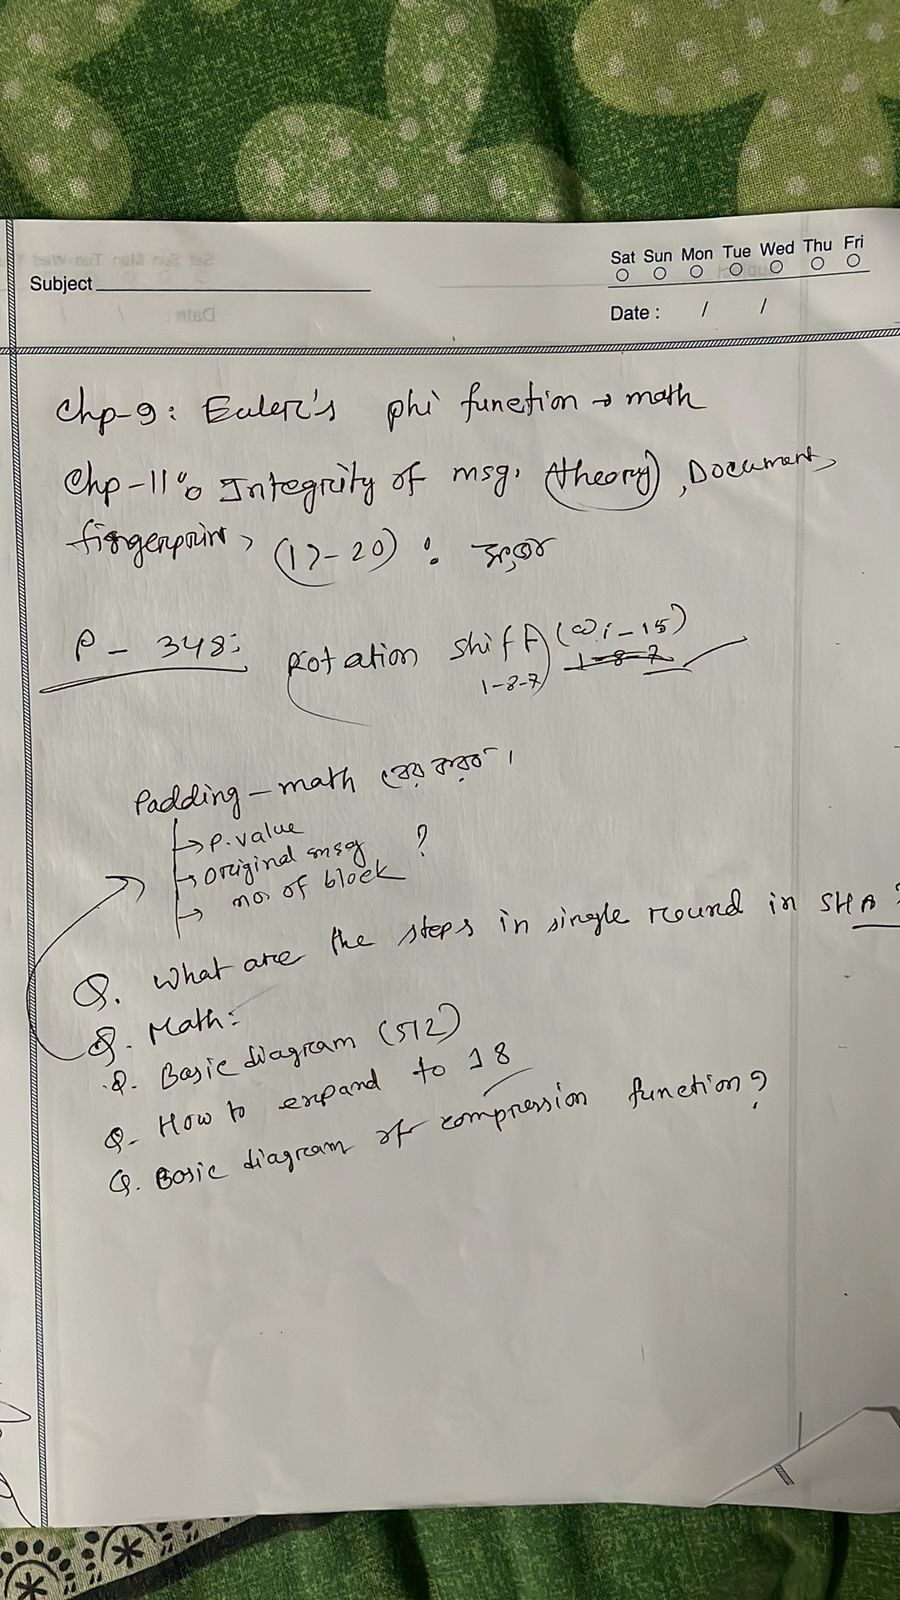 Sat Sun Mon Tue Wed Thu Fri
Subject
Date : / /
Chp-9: Euler's phi function → math
Chp-11: Integrity of msg, (theory), Document,
fingerprint, (17-20) :
P - 348: Rotation shift (ωi-15)
1-8-7 1-8-7
Padding - math বের করব।
→ P. value
→ original msg ?
→ no. of block
Q. What are the steps in single round in SHA ?
Q. Math:
Q. Basic diagram (512)
Q. How to expand to 18
Q. Basic diagram of compression function?